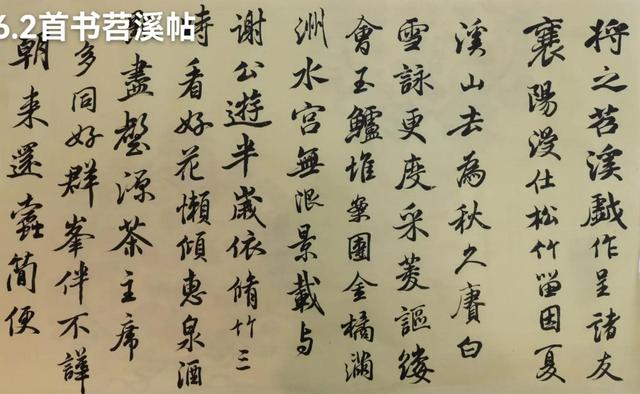 6.2首书苕溪帖
将之苕溪戲作呈諸友
襄陽漫仕松竹畱因夏
溪山去為秋久賡白
雪詠更度采菱謳縷
會玉鱸堆案團金橘滿
洲水宫無限景載与
謝公遊半歲依脩竹三
時看好花懶傾惠泉酒
盡壑源茶主席
多同好群峯伴不譁
朝来還蠹簡便